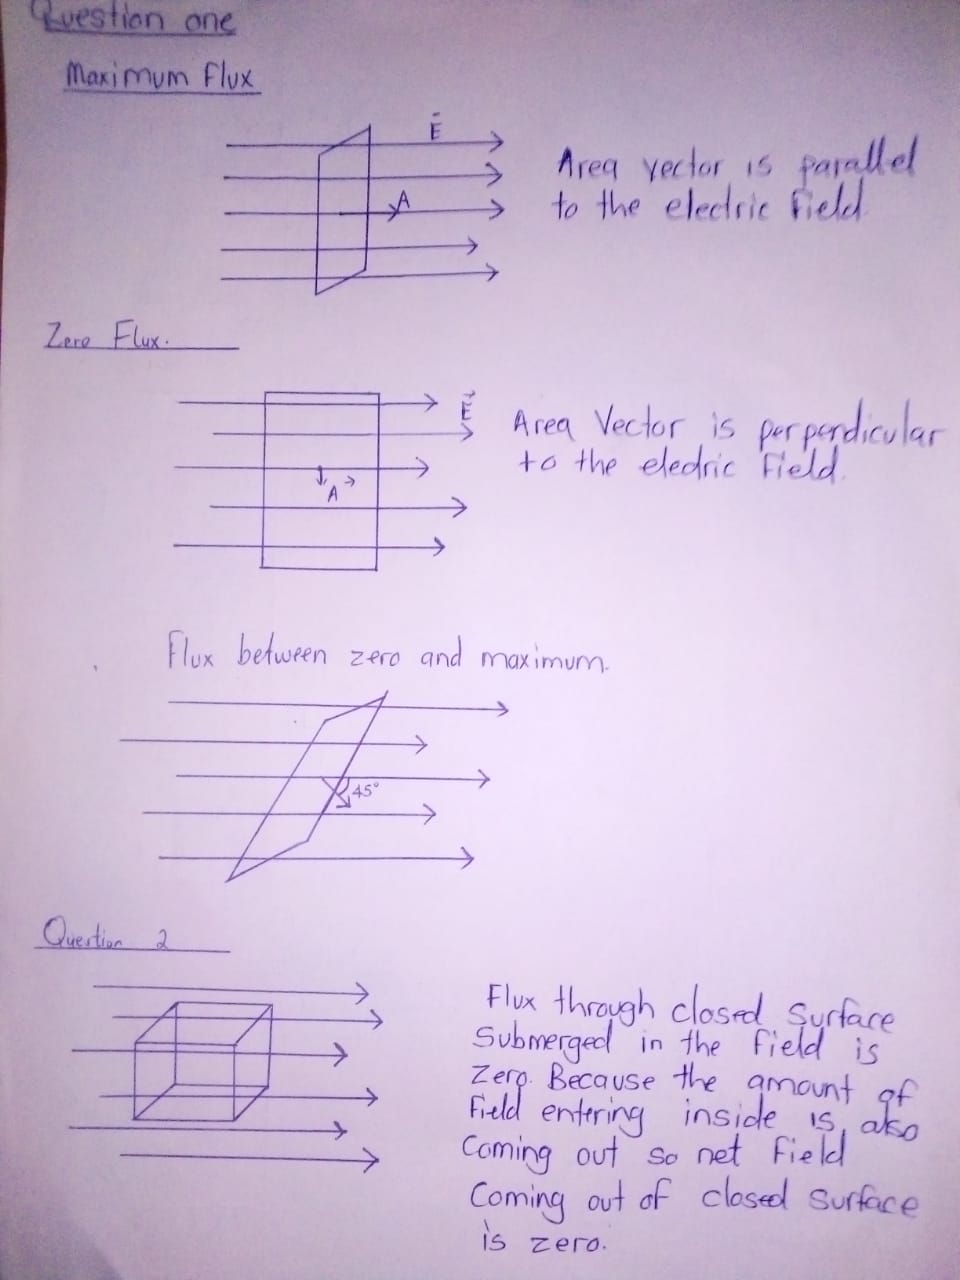 Question one
Maximum Flux
E
A
Area vector is parallel
to the electric field
Zero Flux.
E
A
Area Vector is perpendicular
to the eledric Field.
Flux between zero and maximum.
45°
Question 2
Flux through closed Surface
Submerged in the field is
Zero. Because the amount of
Field entering inside is also
Coming out so net Field
Coming out of closed Surface
is zero.